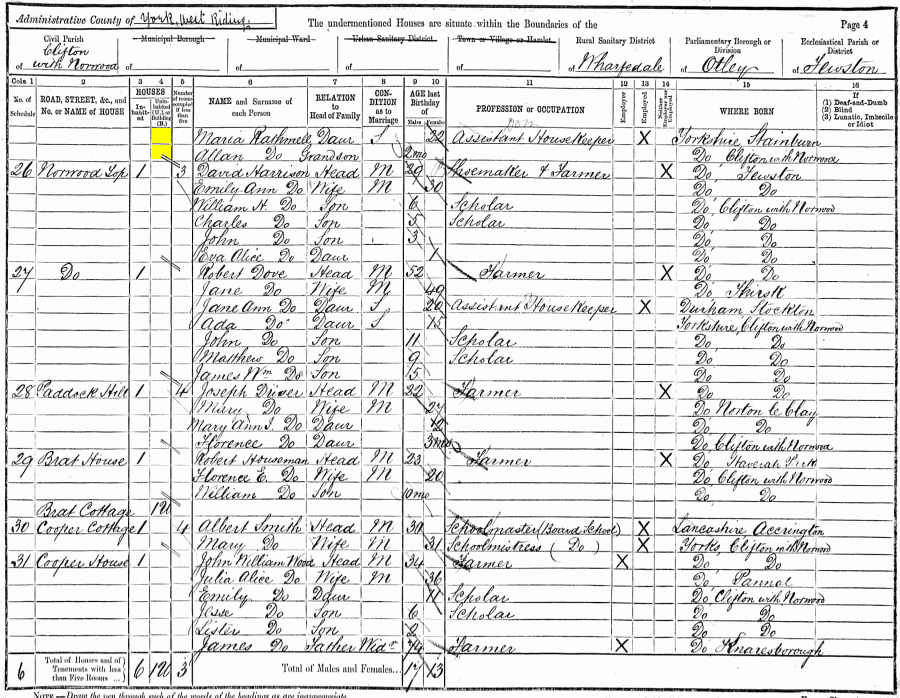 Administrative County of York, West Riding The undermentioned Houses are situate within the Boundaries of the Page 4
Civil Parish Municipal Borough Municipal Ward Urban Sanitary District Town or Village or Hamlet Rural Sanitary District Parliamentary Borough or Division Ecclesiastical Parish or District
of Clifton with Norwood of of of of of Wharfedale of Otley of Fewston
Cols. 1 2 3 4 5 6 7 8 9 10 11 12 13 14 15 16
No. of Schedule ROAD, STREET, &c., and No. or NAME of HOUSE HOUSES Inhabited Uninhabited (U.), or Building (B.) Number of rooms occupied if less than five NAME and Surname of each Person RELATION to Head of Family CONDITION as to Marriage AGE last Birthday of Males Females PROFESSION or OCCUPATION Employer Employed Neither WHERE BORN If (1) Deaf-and-Dumb (2) Blind (3) Lunatic, Imbecile or Idiot
Maria Rathmell Daur S 22 Assistant Housekeeper X Yorkshire Stainburn
Allan Do Grandson 2 mo Do Clifton with Norwood
26 Norwood Top 1 3 David Harrison Head M 29 Shoemaker & Farmer X Do Fewston
Emily Ann Do Wife M 30 Do Do
William H. Do Son 6 Scholar Do Clifton with Norwood
Charles Do Son 5 Scholar Do Do
John Do Son 3 Do Do
Eva Alice Do Daur 1 Do Do
27 Do 1 Robert Dove Head M 52 Farmer X Do Do
Jane Do Wife M 49 Do Thirsk
Jane Ann Do Daur S 20 Assistant Housekeeper X Durham Stockton
Ada Do Daur S 15 Yorkshire, Clifton with Norwood
John Do Son 11 Scholar Do Do
Matthew Do Son 9 Scholar Do Do
James Wm Do Son 5 Do Do
28 Paddock Hill 1 4 Joseph Driver Head M 22 Farmer X Do Do
Mary Do Wife M 27 Do Norton le Clay
Mary Ann Do Daur 12 Do Do
Florence Do Daur 3 mo Do Clifton with Norwood
29 Brat House 1 Robert Houseman Head M 23 Farmer X Do Haverah Park
Florence E. Do Wife M 20 Do Clifton with Norwood
William Do Son 10 mo Do Do
Brat Cottage 1U
30 Cooper Cottage 1 4 Albert Smith Head M 30 Schoolmaster (Board School) X Lancashire Accrington
Mary Do Wife M 31 Schoolmistress (Do) X Yorks, Clifton Norwood
31 Cooper House 1 John William Wood Head M 34 Farmer X Do Do
Julia Alice Do Wife M 36 Do Pannal
Emily Do Daur 11 Scholar Do Clifton with Norwood
Jesse Do Son 6 Scholar Do Do
Lister Do Son 2 Do Do
James Do Father Widr 74 Farmer X Do Knaresborough
6 Total of Houses and of Tenements with less than Five Rooms 6 1U 3 Total of Males and Females... 17 13
NOTE.—Draw the pen through such of the words of the headings as are inappropriate.